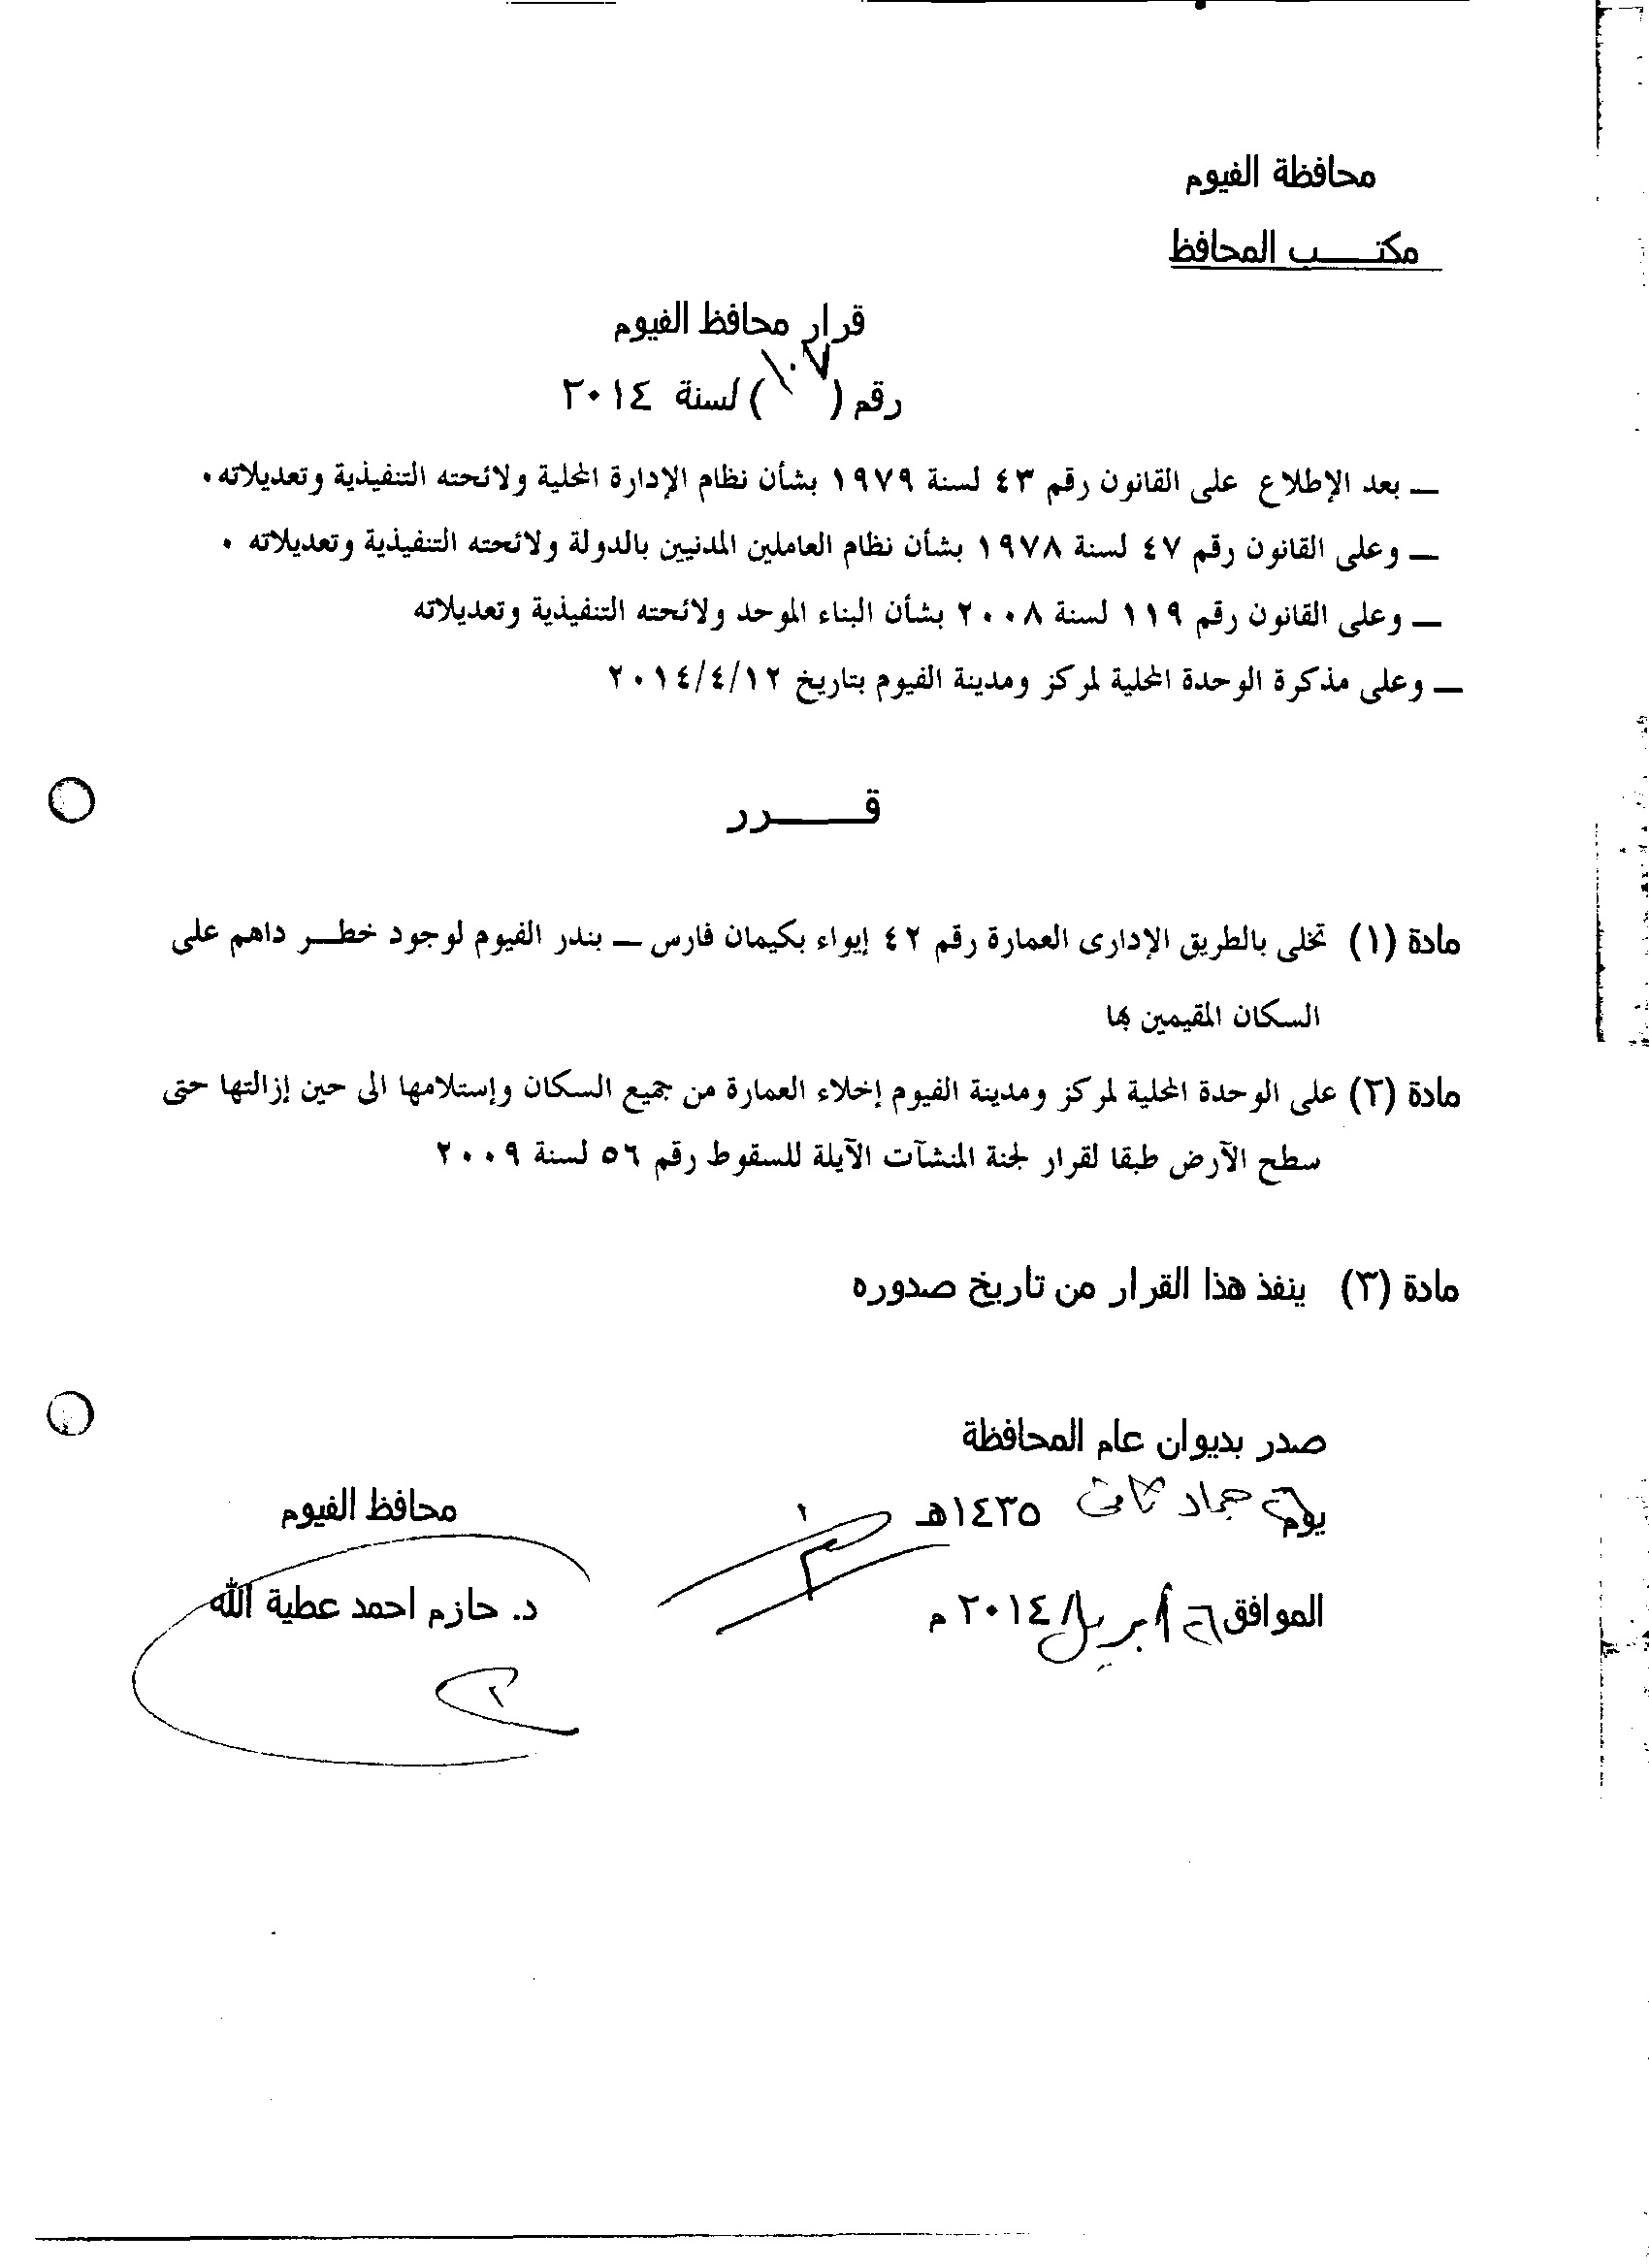 محافظة الفيوم
مكتـــــب المحافظ
قرار محافظ الفيوم
رقم (١٠٧) لسنة ٢٠١٤
ــ بعد الإطلاع على القانون رقم ٤٣ لسنة ١٩٧٩ بشأن نظام الإدارة المحلية ولائحته التنفيذية وتعديلاته٠
ــ وعلى القانون رقم ٤٧ لسنة ١٩٧٨ بشأن نظام العاملين المدنيين بالدولة ولائحته التنفيذية وتعديلاته ٠
ــ وعلى القانون رقم ١١٩ لسنة ٢٠٠٨ بشأن البناء الموحد ولائحته التنفيذية وتعديلاته
ــ وعلى مذكرة الوحدة المحلية لمركز ومدينة الفيوم بتاريخ ٢٠١٤/٤/١٢
قـــــــرر
مادة (١) تخلى بالطريق الإدارى العمارة رقم ٤٢ إيواء بكيمان فارس ــ بندر الفيوم لوجود خطــر داهم على
السكان المقيمين بها
مادة (٢) على الوحدة المحلية لمركز ومدينة الفيوم إخلاء العمارة من جميع السكان وإستلامها الى حين إزالتها حتى
سطح الأرض طبقا لقرار لجنة المنشآت الآيلة للسقوط رقم ٥٦ لسنة ٢٠٠٩
مادة (٣) ينفذ هذا القرار من تاريخ صدوره
صدر بديوان عام المحافظة
يوم جماد ثانى ١٤٣٥هـ
الموافق ٢٦ ابريل ٢٠١٤ م
محافظ الفيوم
د. حازم احمد عطية الله